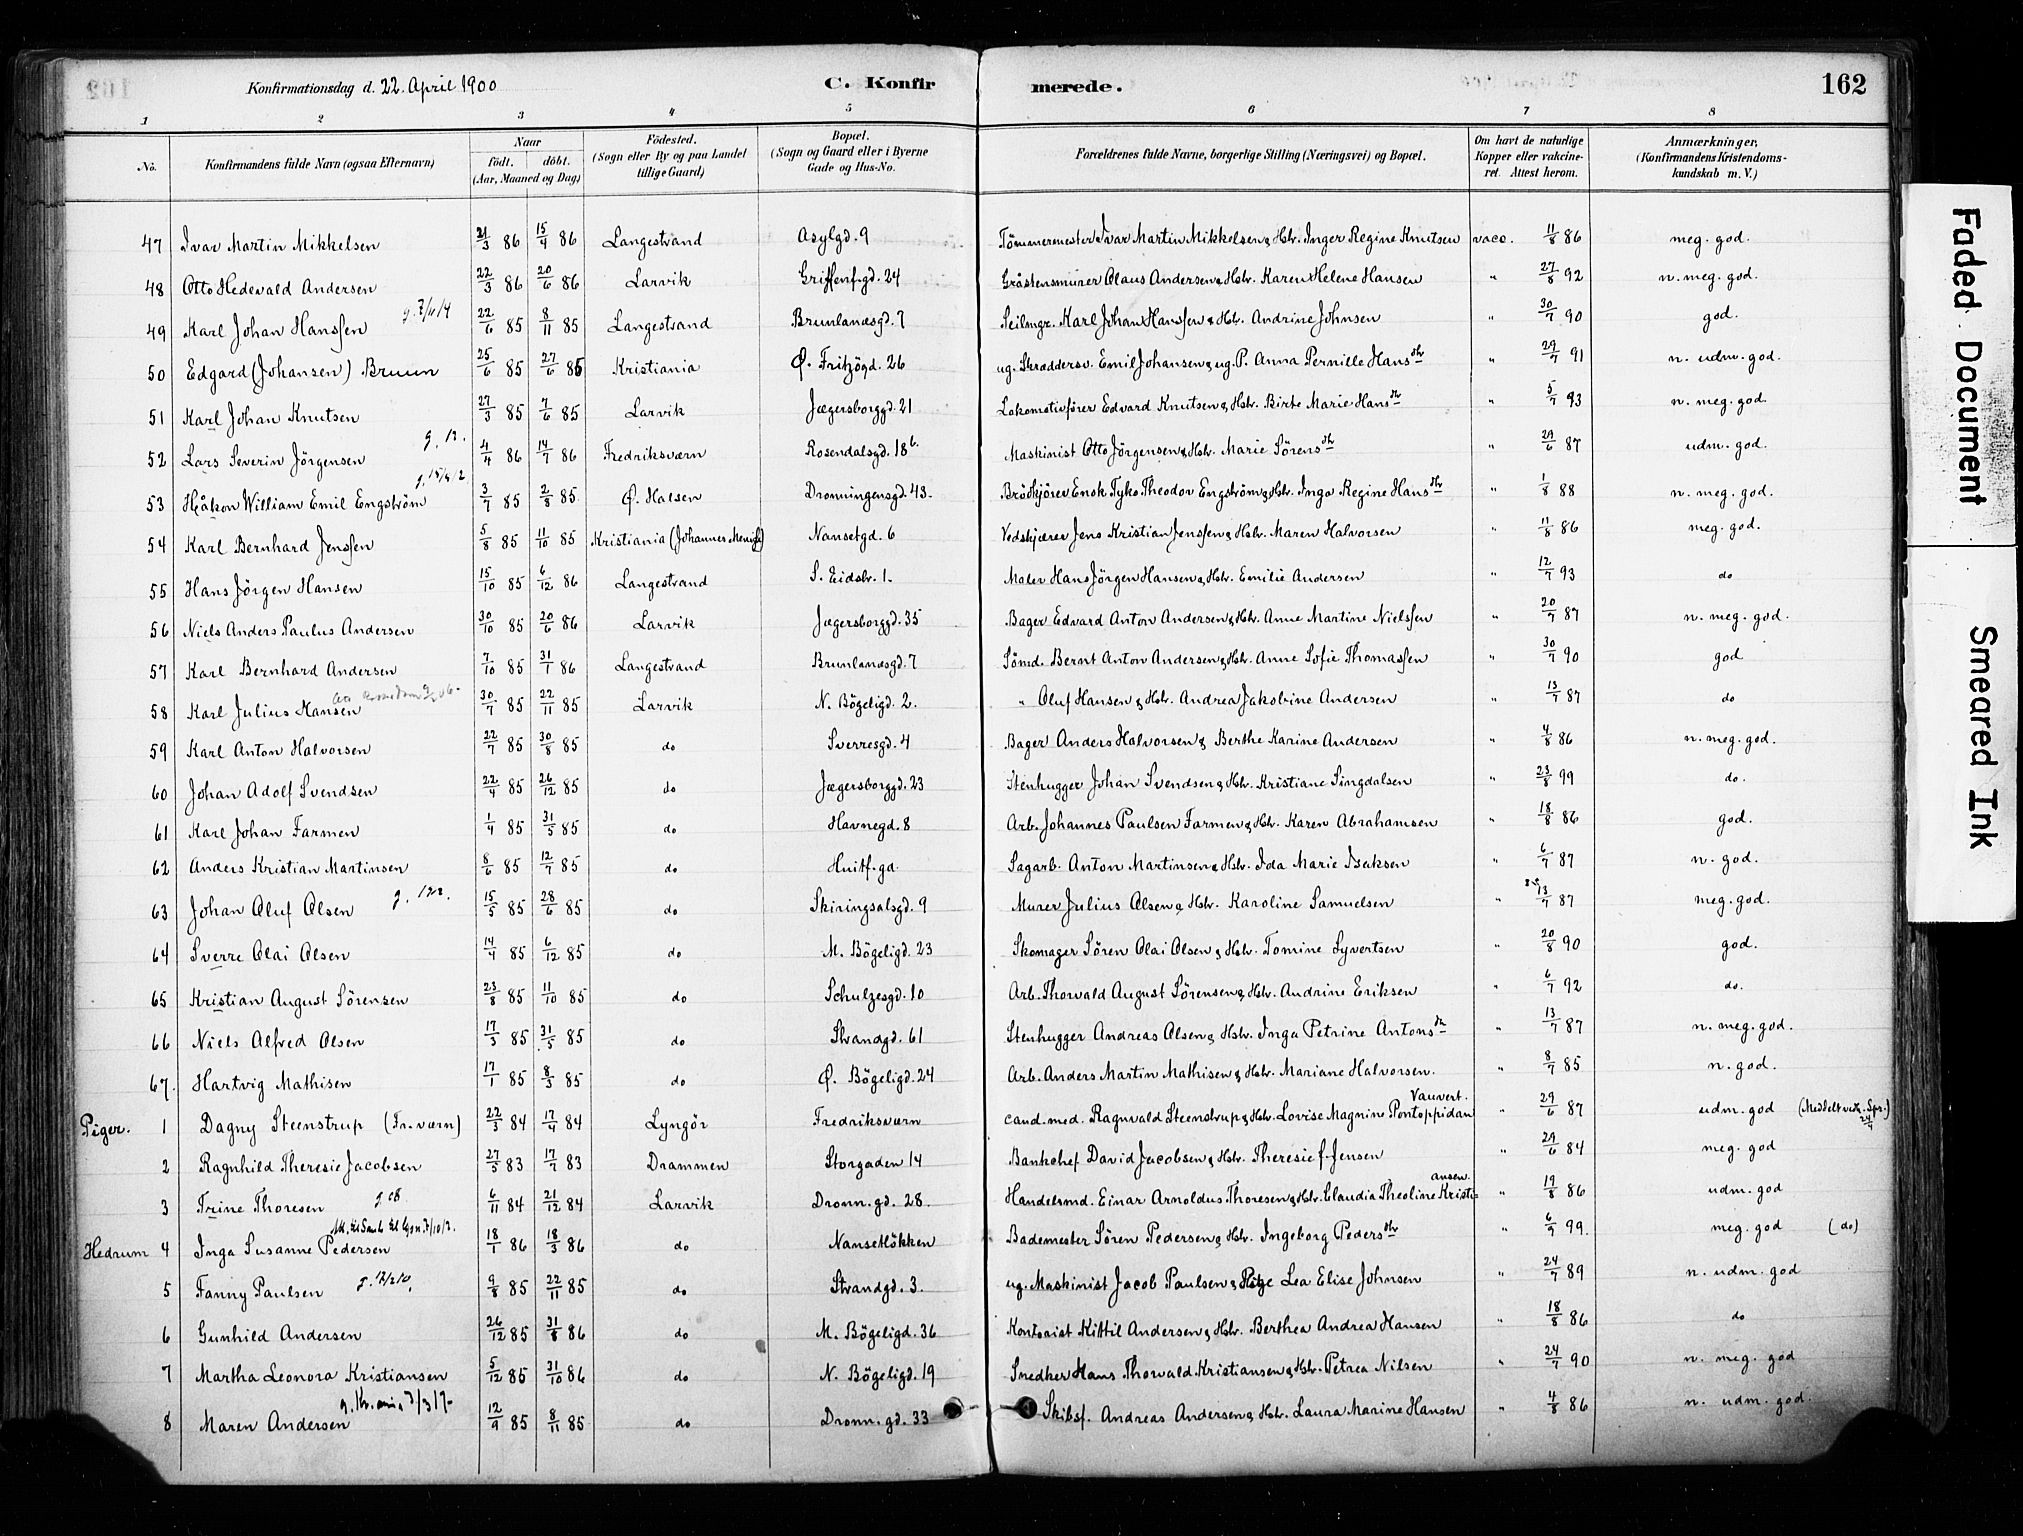 Konfirmationsdag d. 22. April 1900 C. Konfir merede. 162
1 2 3 4 5 6 7 8
No. Konfirmandens fulde Navn (ogsaa Efternavn) Naar födt. döbt. (Aar, Maaned og Dag) Födested. (Sogn eller By og paa Landet tillige Gaard) Bopæl. (Sogn og Gaard eller i Byerne Gade og Hus-No. Forældrenes fulde Navne, borgerlige Stilling (Næringsvei) og Bopæl. Om havt de naturlige Kopper eller vakcineret. Attest herom. Anmærkninger, (Konfirmandens Kristendomskundskab m. V.)
47 Ivar Martin Mikkelsen 21/3 86 15/4 86 Langestrand Asylgd. 9 Tömmermester Ivar Martin Mikkelsen & Hstr. Inger Regine Knutsen vacc. 11/8 86 meg. god.
48 Otto Hedevald Andersen 22/3 86 20/6 86 Larvik Griffenf.gd. 24 Gråstensmurer Olaus Andersen & Hstr. Karen Helene Hansen " 27/8 92 n. meg. god.
49 Karl Johan Hanssen 22/6 85 8/11 85 Langestrand Brunlanæsgd. 7 Seilmgr. Karl Johan Hanssen & Hstr. Andrine Johnsen " 30/7 90 god.
50 Edgard (Johansen) Bruun 25/6 85 27/6 85 Kristiania Ø. Fritzögd. 26 ug. Skræddersv. Emil Johansen & ug. P. Anna Pernille Hansdtr " 29/7 91 n. udm. god.
51 Karl Johan Knutsen 27/3 85 7/6 85 Larvik Jægersborggd. 21 Lokomotivförer Edvard Knutsen & Hstr. Birte Marie Hansdtr " 5/7 93 n. meg. god.
52 Lars Severin Jörgensen g. 12. 4/4 86 14/7 86 Fredriksværn Rosendalsgd. 18b. Maskinist Otto Jörgensen & Hstr. Marie Sörensdtr " 29/6 87 udm. god.
53 Håkon William Emil Engström 3/7 85 2/8 85 Ø. Halsen Dronningensgd. 43. Brödkjörer Enok Tyko Theodor Engström & Hstr. Inga Regine Hansdtr " 1/8 88 n. meg. god.
54 Karl Bernhard Jenssen 5/8 85 11/10 85 Kristiania (Johannes Menigh) Nansetgd. 6 Vedskjærer Jens Kristian Jenssen & Hstr. Maren Halvorsen " 11/8 86 meg. god.
55 Hans Jörgen Hansen 15/10 85 6/12 86 Langestrand S. Eidsbr. 1. Maler Hans Jörgen Hansen & Hstr. Emilie Andersen " 12/7 93 do
56 Niels Anders Paulus Andersen 30/10 85 20/6 86 Larvik Jægersborggd. 35 Bager Edvard Anton Andersen & Hstr. Anne Martine Nielssen " 20/7 87 n. meg. god.
57 Karl Bernhard Andersen 7/10 85 31/1 86 Langestrand Brunlanæsgd. 7 Sömd. Bernt Anton Andersen & Hstr. Anne Sofie Thomassen " 30/7 90 god
58 Karl Julius Hansen 30/7 85 22/11 85 Larvik N. Bögeligd. 2. " Oluf Hansen & Hstr. Andrea Jakobine Andersen " 13/7 87 do
59 Karl Anton Halvorsen 22/7 85 30/8 85 do Sverresgd. 4 Bager Anders Halvorsen & Berthe Karine Andersen " 4/8 86 n. meg. god.
60 Johan Adolf Svendsen 22/4 85 26/12 85 do Jægersborggd. 23 Stenhugger Johan Svendsen & Hstr. Kristiane Singdalsen " 23/8 99 do.
61 Karl Johan Farmen 1/4 85 31/5 85 do Havnegd. 8 Arb. Johannes Paulsen Farmen & Hstr. Karen Abrahamsen " 18/8 86 god.
62 Anders Kristian Martinsen 8/6 85 12/7 85 do Huitf.gd. Sagarb. Anton Martinsen & Hstr. Ida Marie Isaksen " 6/7 87 n. god.
63 Johan Oluf Olsen g. 122. 15/5 85 28/6 85 do Skiringsalsgd. 9 Murer Julius Olsen & Hstr. Karoline Samuelsen " 13/7 87 meg. god.
64 Sverre Olai Olsen 14/4 85 6/12 85 do M. Bögeligd. 23 Skomager Sören Olai Olsen & Hstr. Tomine Syvertsen " 20/8 90 god.
65 Kristian August Sörensen 23/8 85 11/10 85 do Schulzesgd. 10 Arb. Thorvald August Sörensen & Hstr. Andrine Eriksen " 6/7 92 do.
66 Niels Alfred Olsen 17/3 85 31/5 85 do Strandgd. 61 Stenhugger Andreas Olsen & Hstr. Inga Petrine Antonsdtr " 13/7 87 n. meg. god.
67. Hartvig Mathisen 17/1 85 8/3 85 do Ø. Bögeligd. 24 Arb. Anders Martin Mathisen & Hstr. Mariane Halvorsen. " 8/7 85 n. god.
Piger. 1 Dagny Steenstrup (Fr.værn) 22/3 84 17/4 84 Lyngör Fredriksværn cand. med. Ragnvald Steenstrup & Hstr. Lovise Magnine Vauvert. Pontoppidan " 29/6 87 udm. god (Meddelt vedk. Spr.) 24/4
2 Ragnhild Theresie Jacobsen 27/5 83 17/7 83 Drammen Storgaden 14 Bankchef David Jacobsen & Hstr. Theresie f. Jensen " 29/6 84 meg. god
3 Trine Thoresen g 08 6/11 84 21/12 84 Larvik Dronn. gd. 28. Handelsmd. Einar Arnoldus Thoresen & Hstr. Claudia Theoline Kristiansen " 19/8 86 udm. god
Hedrum 4 Inga Susanne Pedersen 18/1 86 18/3 86 do Nansetlökken Bademester Sören Pedersen & Hstr. Ingeborg Pedersdtr " 6/9 99. meg. god (do)
5 Fanny Paulsen g. 12/2 10. 9/8 85 22/11 85 do Strandgd. 3. ug. Maskinist Jacob Paulsen & Pige Lea Elise Johnsen " 24/7 89 n. udm. god
6 Gunhild Andersen 26/12 85 31/8 86 do M. Bögeligd. 36 Kontorist Kittil Andersen & Hstr. Berthea Andrea Hansen " 18/8 86 do
7 Martha Leonora Kristiansen 5/12 85 31/10 86 do N. Bögeligd. 19 Snedker Hans Thorvald Kristiansen & Hstr. Petrea Nilsen " 24/7 90 n. meg. god
8 Maren Andersen 12/9 85 8/11 85 do Dronn. gd. 33 Skibsf. Andreas Andersen & Hstr. Laura Marine Hansen " 4/8 86 n. udm. god.
Faded Document
Smeared Ink